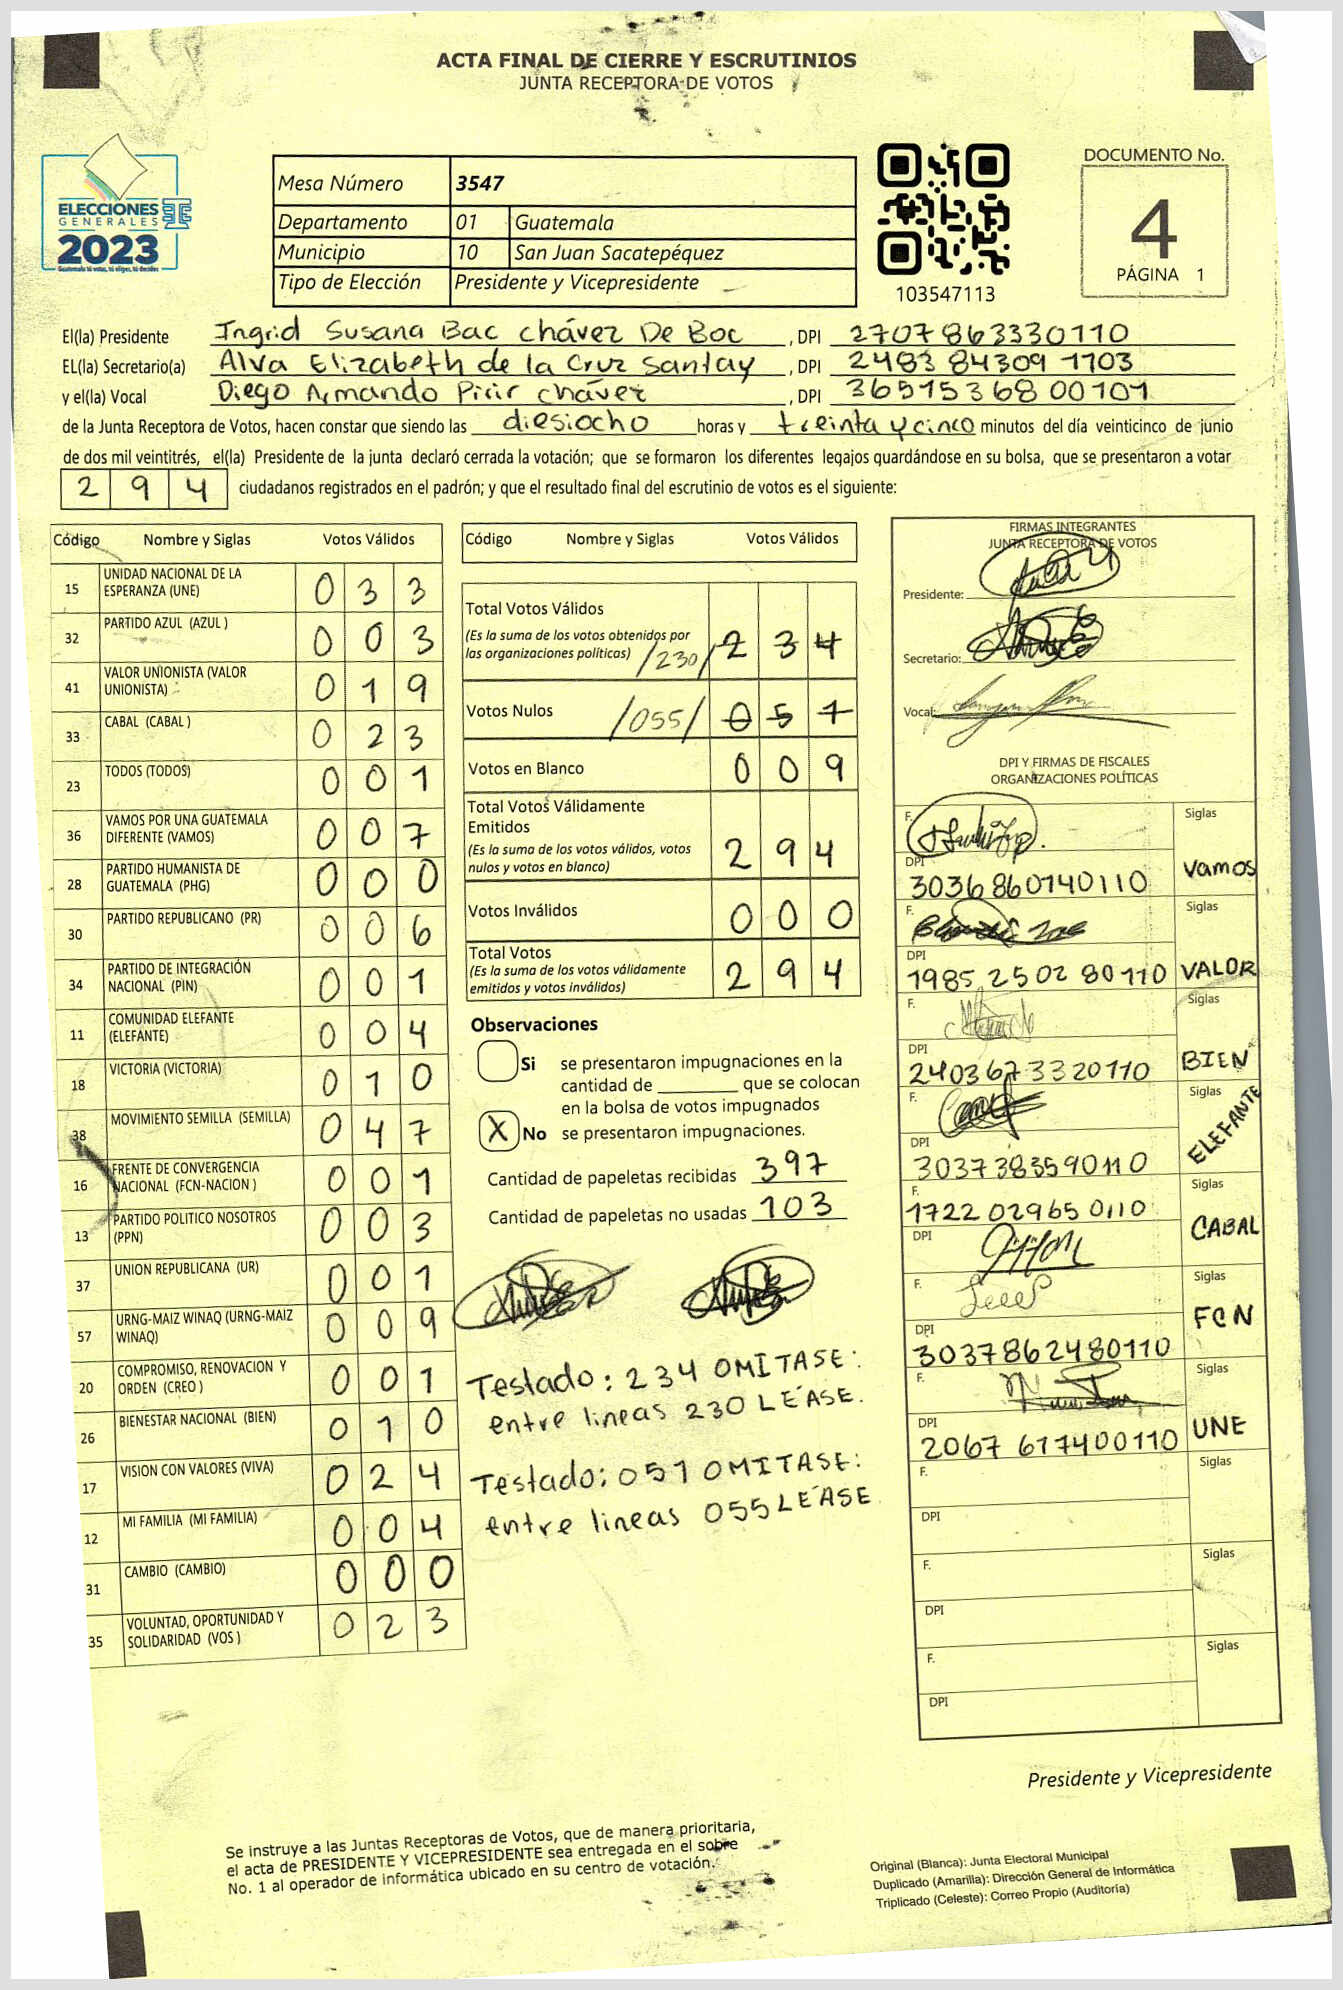 ACTA FINAL DE CIERRE Y ESCRUTINIOS
JUNTA RECEPTORA DE VOTOS
ELECCIONES
GENERALES
2023
Guatemala tú votas, tú eliges, tú decides
Mesa Número 3547
Departamento 01 Guatemala
Municipio 10 San Juan Sacatepéquez
Tipo de Elección Presidente y Vicepresidente
103547113
DOCUMENTO No.
4
PÁGINA 1
El(la) Presidente Ingrid Susana Bac chávez De Boc, DPI 2707863330110
EL(la) Secretario(a) Alva Elizabeth de la Cruz Santay, DPI 2483 84309 1103
y el(la) Vocal Diego Armando Pirir chávez, DPI 36515368 00101
de la Junta Receptora de Votos, hacen constar que siendo las diesiocho horas y treinta y cinco minutos del día veinticinco de junio
de dos mil veintitrés, el(la) Presidente de la junta declaró cerrada la votación; que se formaron los diferentes legajos quardándose en su bolsa, que se presentaron a votar
294 ciudadanos registrados en el padrón; y que el resultado final del escrutinio de votos es el siguiente:
Código Nombre y Siglas Votos Válidos
15 UNIDAD NACIONAL DE LA ESPERANZA (UNE) 033
32 PARTIDO AZUL (AZUL ) 003
41 VALOR UNIONISTA (VALOR UNIONISTA) 019
33 CABAL (CABAL ) 023
23 TODOS (TODOS) 001
36 VAMOS POR UNA GUATEMALA DIFERENTE (VAMOS) 007
28 PARTIDO HUMANISTA DE GUATEMALA (PHG) 000
30 PARTIDO REPUBLICANO (PR) 006
34 PARTIDO DE INTEGRACIÓN NACIONAL (PIN) 001
11 COMUNIDAD ELEFANTE (ELEFANTE) 004
18 VICTORIA (VICTORIA) 010
38 MOVIMIENTO SEMILLA (SEMILLA) 047
16 FRENTE DE CONVERGENCIA NACIONAL (FCN-NACION ) 001
13 PARTIDO POLITICO NOSOTROS (PPN) 003
37 UNION REPUBLICANA (UR) 001
57 URNG-MAIZ WINAQ (URNG-MAIZ WINAQ) 009
20 COMPROMISO, RENOVACION Y ORDEN (CREO ) 001
26 BIENESTAR NACIONAL (BIEN) 010
17 VISION CON VALORES (VIVA) 024
12 MI FAMILIA (MI FAMILIA) 004
31 CAMBIO (CAMBIO) 000
35 VOLUNTAD, OPORTUNIDAD Y SOLIDARIDAD (VOS ) 023
Código Nombre y Siglas Votos Válidos
Total Votos Válidos
(Es la suma de los votos obtenidos por
las organizaciones políticas) /230/ 234
Votos Nulos /055/ 051
Votos en Blanco 009
Total Votos Válidamente
Emitidos
(Es la suma de los votos válidos, votos
nulos y votos en blanco) 294
Votos Inválidos 000
Total Votos
(Es la suma de los votos válidamente
emitidos y votos inválidos) 294
Observaciones
Si se presentaron impugnaciones en la
cantidad de ________ que se colocan
en la bolsa de votos impugnados
X No se presentaron impugnaciones.
Cantidad de papeletas recibidas 397
Cantidad de papeletas no usadas 103
Testado: 234 OMITASE:
entre lineas 230 LÉASE.
Testado: 051 OMITASE:
entre lineas 055 LÉASE
FIRMAS INTEGRANTES
JUNTA RECEPTORA DE VOTOS
Presidente:
Secretario:
Vocal:
DPI Y FIRMAS DE FISCALES
ORGANIZACIONES POLÍTICAS
F. Siglas
DPI 3036860140110 Vamos
F. Siglas
DPI 1985 2502 80110 VALOR
F. Siglas
DPI 2403673320110 BIEN
F. Siglas
DPI 3037383590110 ELEFANTE
F. Siglas
1722 02965 0110 CABAL
DPI
F. Siglas
DPI 3037862480110 FCN
F. Siglas
DPI 2067 617400110 UNE
F. Siglas
DPI
F. Siglas
DPI
F. Siglas
DPI
Presidente y Vicepresidente
Se instruye a las Juntas Receptoras de Votos, que de manera prioritaria,
el acta de PRESIDENTE Y VICEPRESIDENTE sea entregada en el sobre
No. 1 al operador de informática ubicado en su centro de votación.
Original (Blanca): Junta Electoral Municipal
Duplicado (Amarilla): Dirección General de Informática
Triplicado (Celeste): Correo Propio (Auditoría)